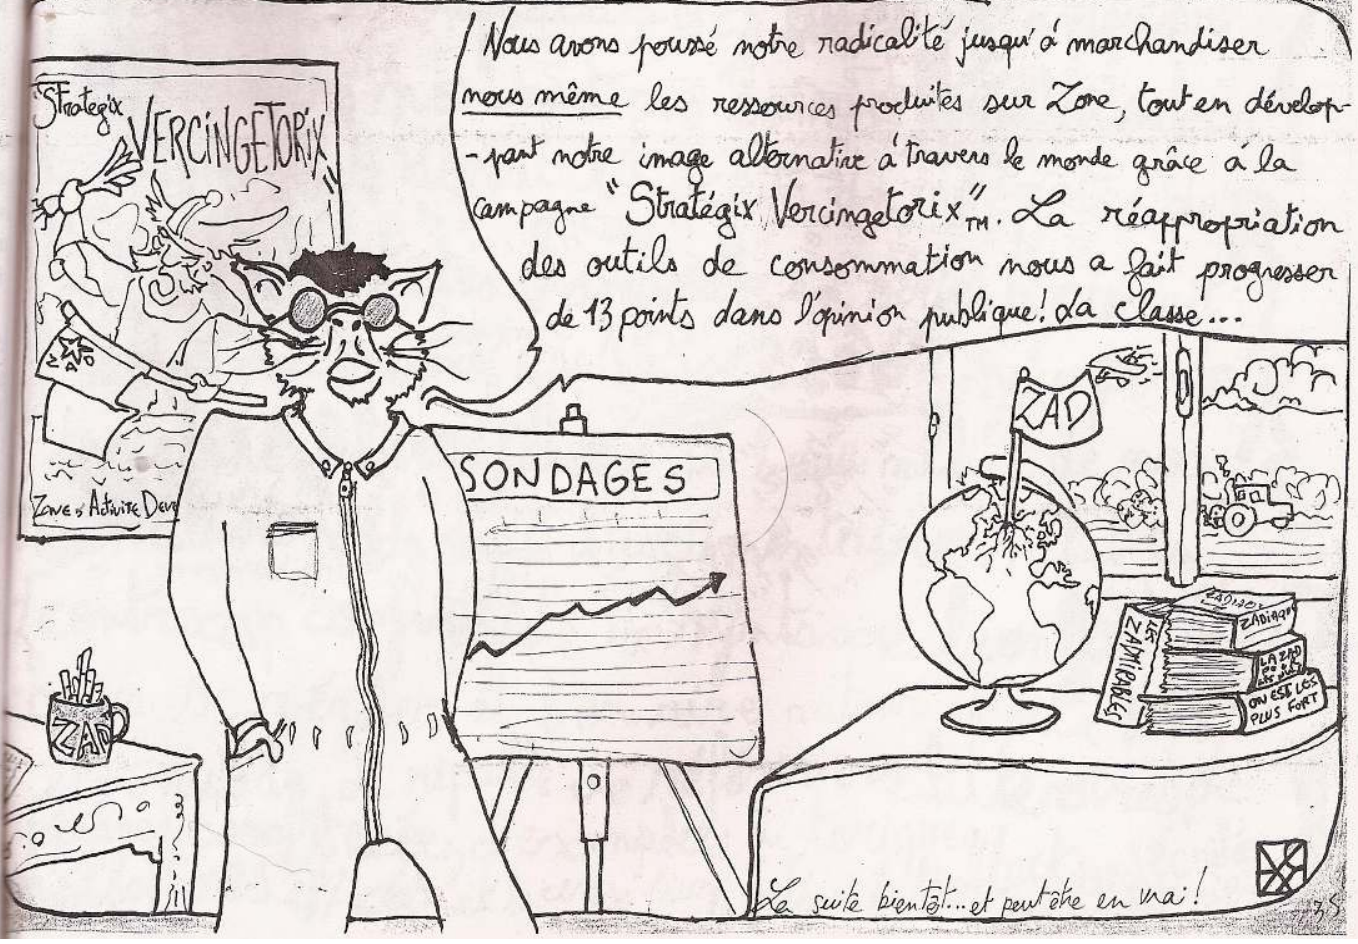 Nous avons poussé notre radicalité jusqu'à marchandiser
nous même les ressources produites sur Zone, tout en dévelop-
-pant notre image alternative à travers le monde grâce à la
campagne "Stratégix Vercingetorix"™. La réappropriation
des outils de consommation nous a fait progresser
de 13 points dans l'opinion publique! La classe...
Strategix
VERCINGETORIX
ZAD
ZONE D'Activité Deve
SONDAGES
ZAD
ZAD
LES ZADMIRABLES
ZADIAQUE
LA ZAD
ON EST LES
PLUS FORT
La suite bientôt...et peut être en vrai!
35